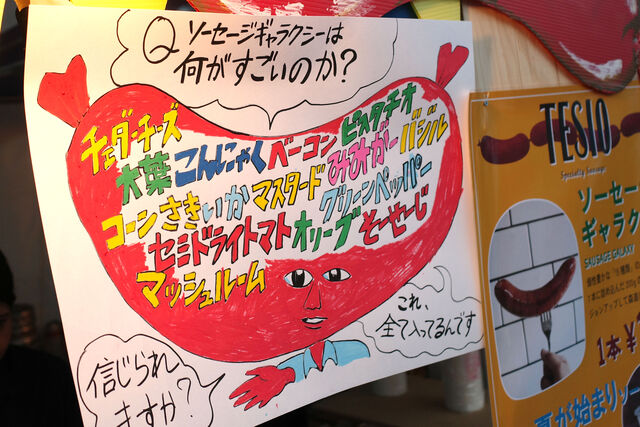 Q ソーセージギャラクシーは
何がすごいのか?
チェダーチーズ
大葉 こんにゃく ベーコン ピスタチオ
コーン さきいか マスタード みみがー バジル
セミドライトマト オリーブ グリーンペッパー
マッシュルーム そーせーじ
これ、
全て入ってるんです
信じられ
ますか?
TESIO
Specialty Sausage
ソーセー
ギャラク
SAUSAGE GALAXY
1本¥
夏が始まりッ